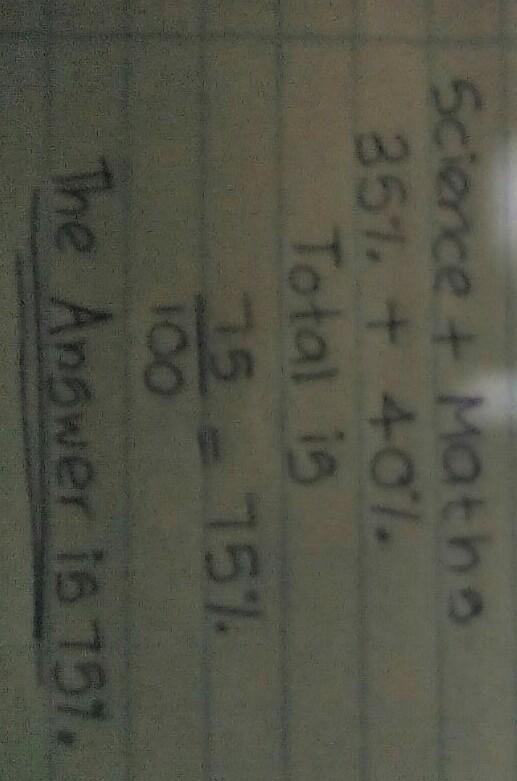 Science + Maths
35% + 40%
Total is
75
100
= 75%
The Answer is 75%.